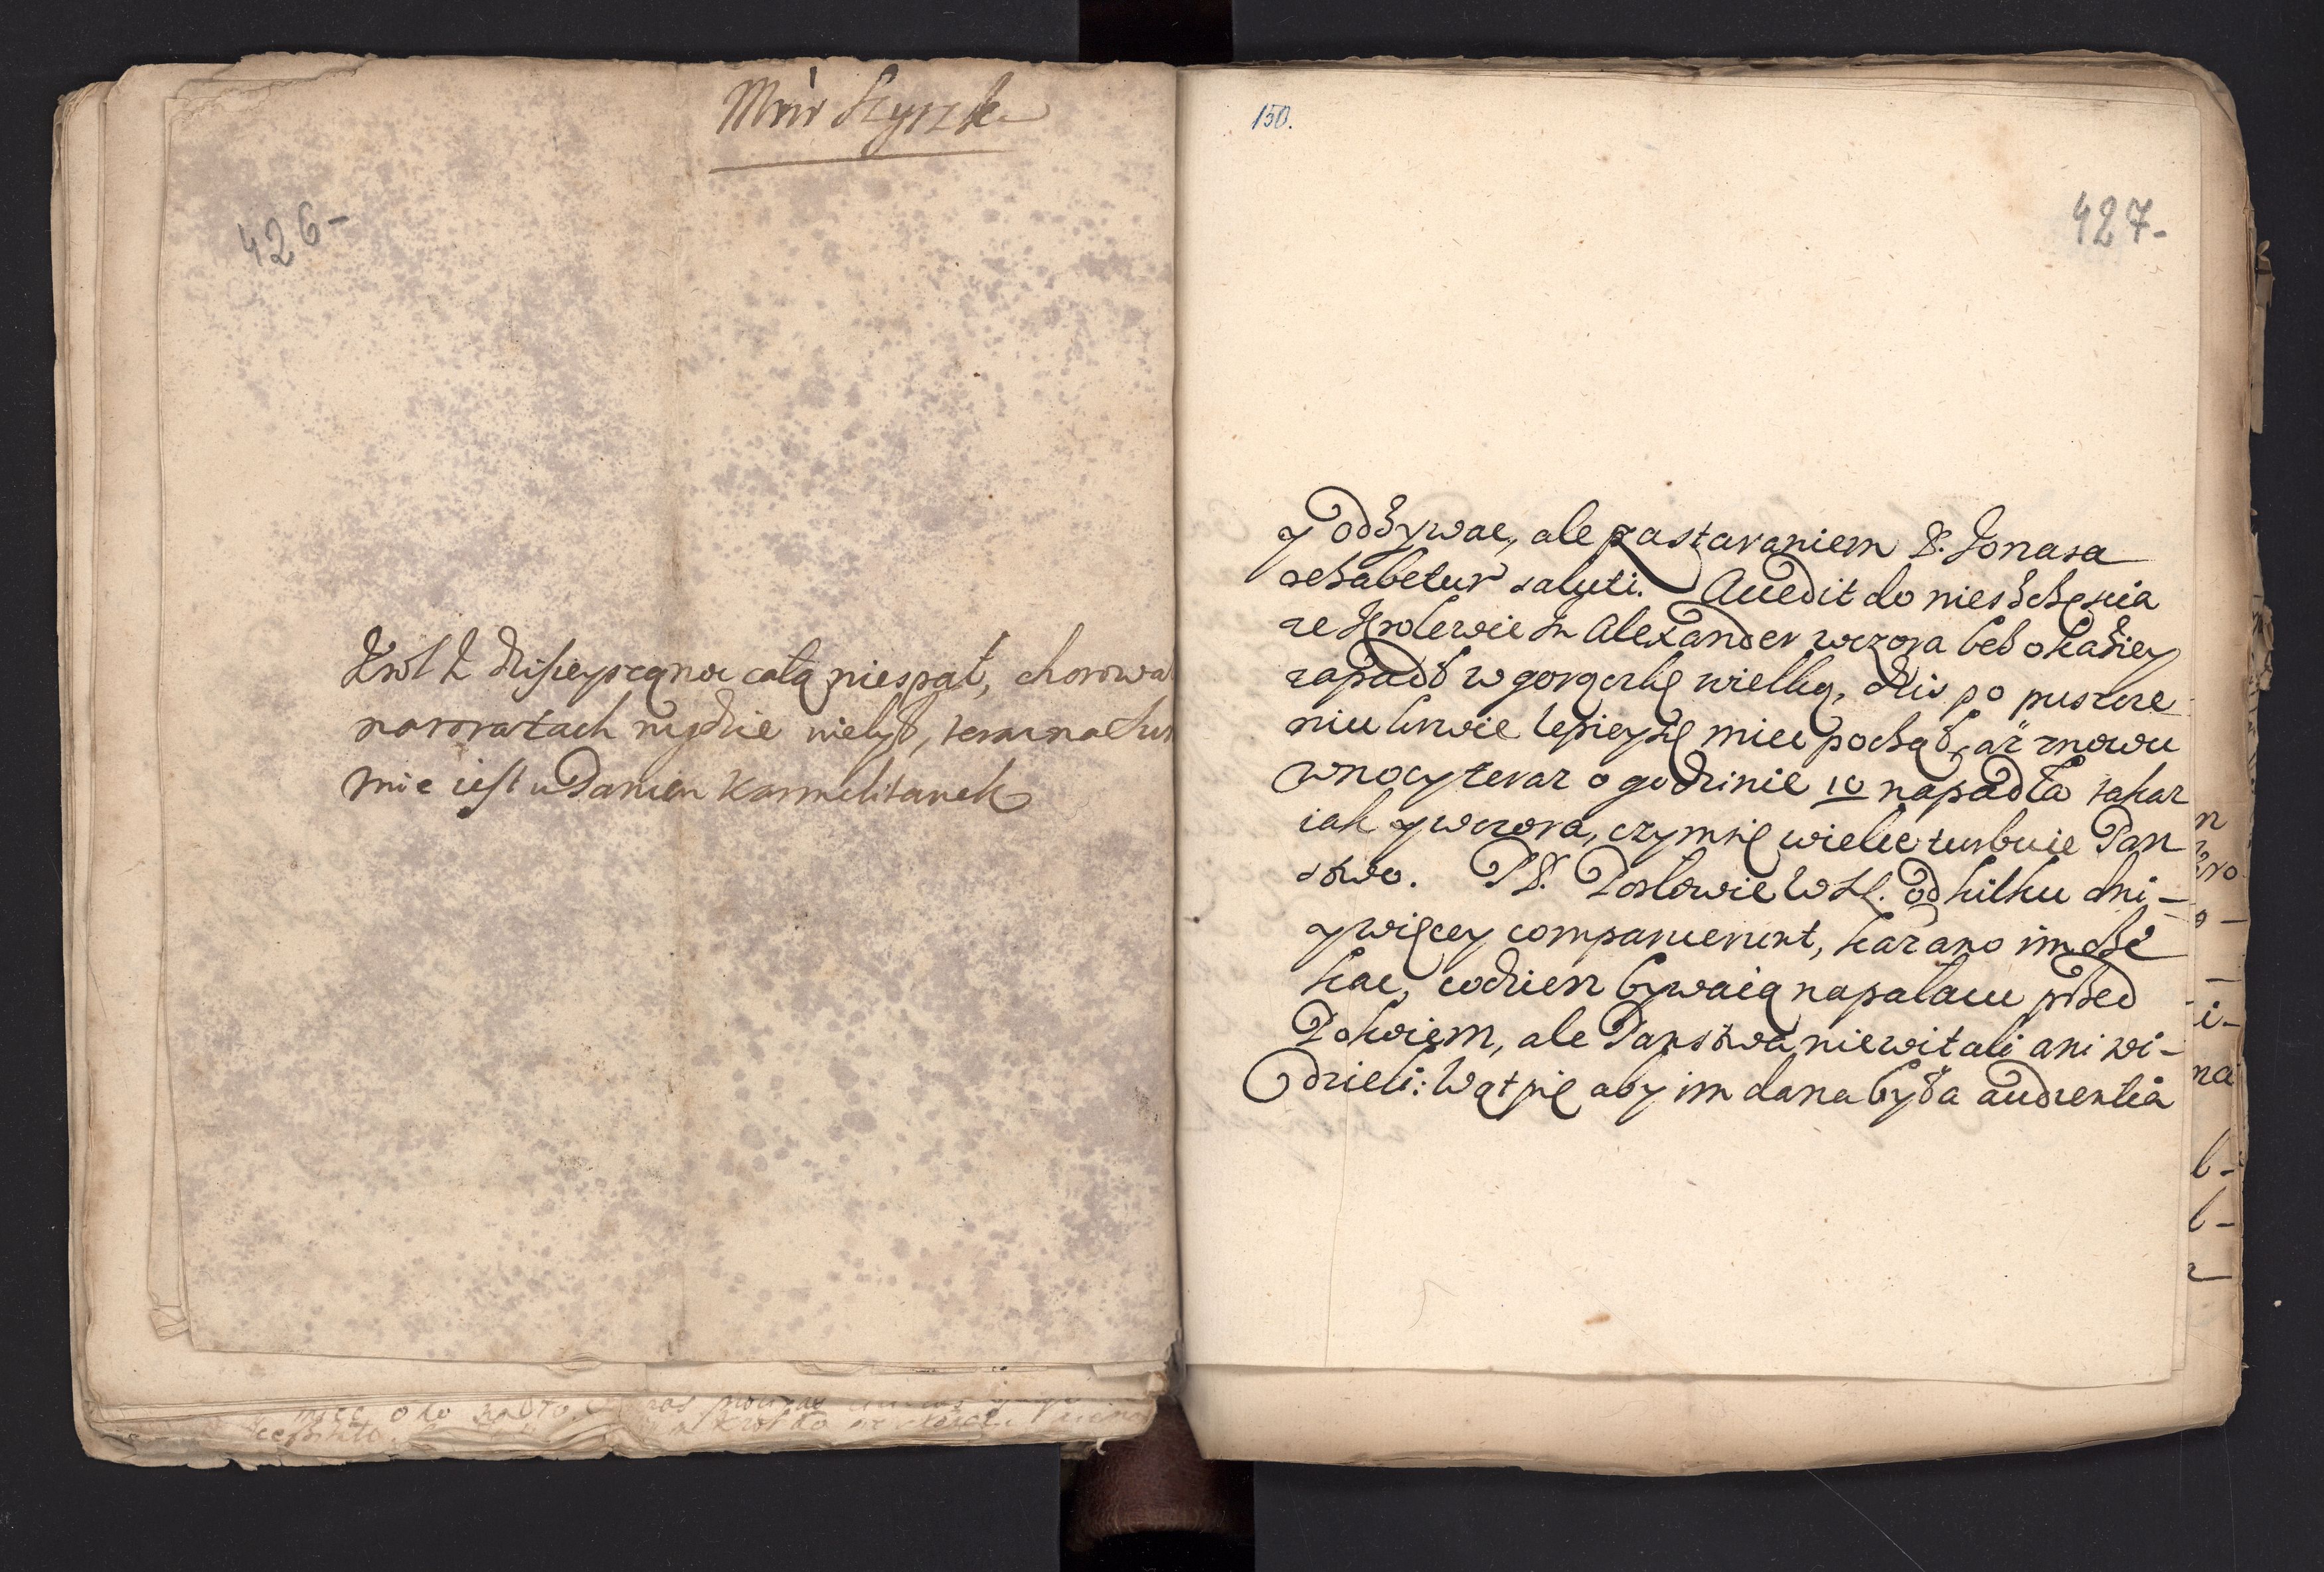 426-
Krol J dzisieyszą noc całą niespał, chorował
naroratach nigdzie niebył, teraz na chur
mie iest u Panien Karmelitanek
150.
427-
y odżywac, ale zastaraniem P. Jonasa
rehabetur saluti. Accedit do nieszczęscia
ze Krolewic Jm Alexander wczora bez okaziey
zapadł w gorączkę wielką, dzis po puszcze
niu krwie lepiey się miec począł, aż znowu
wnocy teraz o godzinie 10 napadła takaż
iak y wczora, czym się wielce turbuie Pan
stwo. PP. Posłowie WXL. od kilku dni
y więcey comparuerunt, kazano im cze
kac, codzien bywaią napałacu przed
Pokoiem, ale Panstwa niewitali ani wi-
dzieli: Wątpię aby im dana była audientia